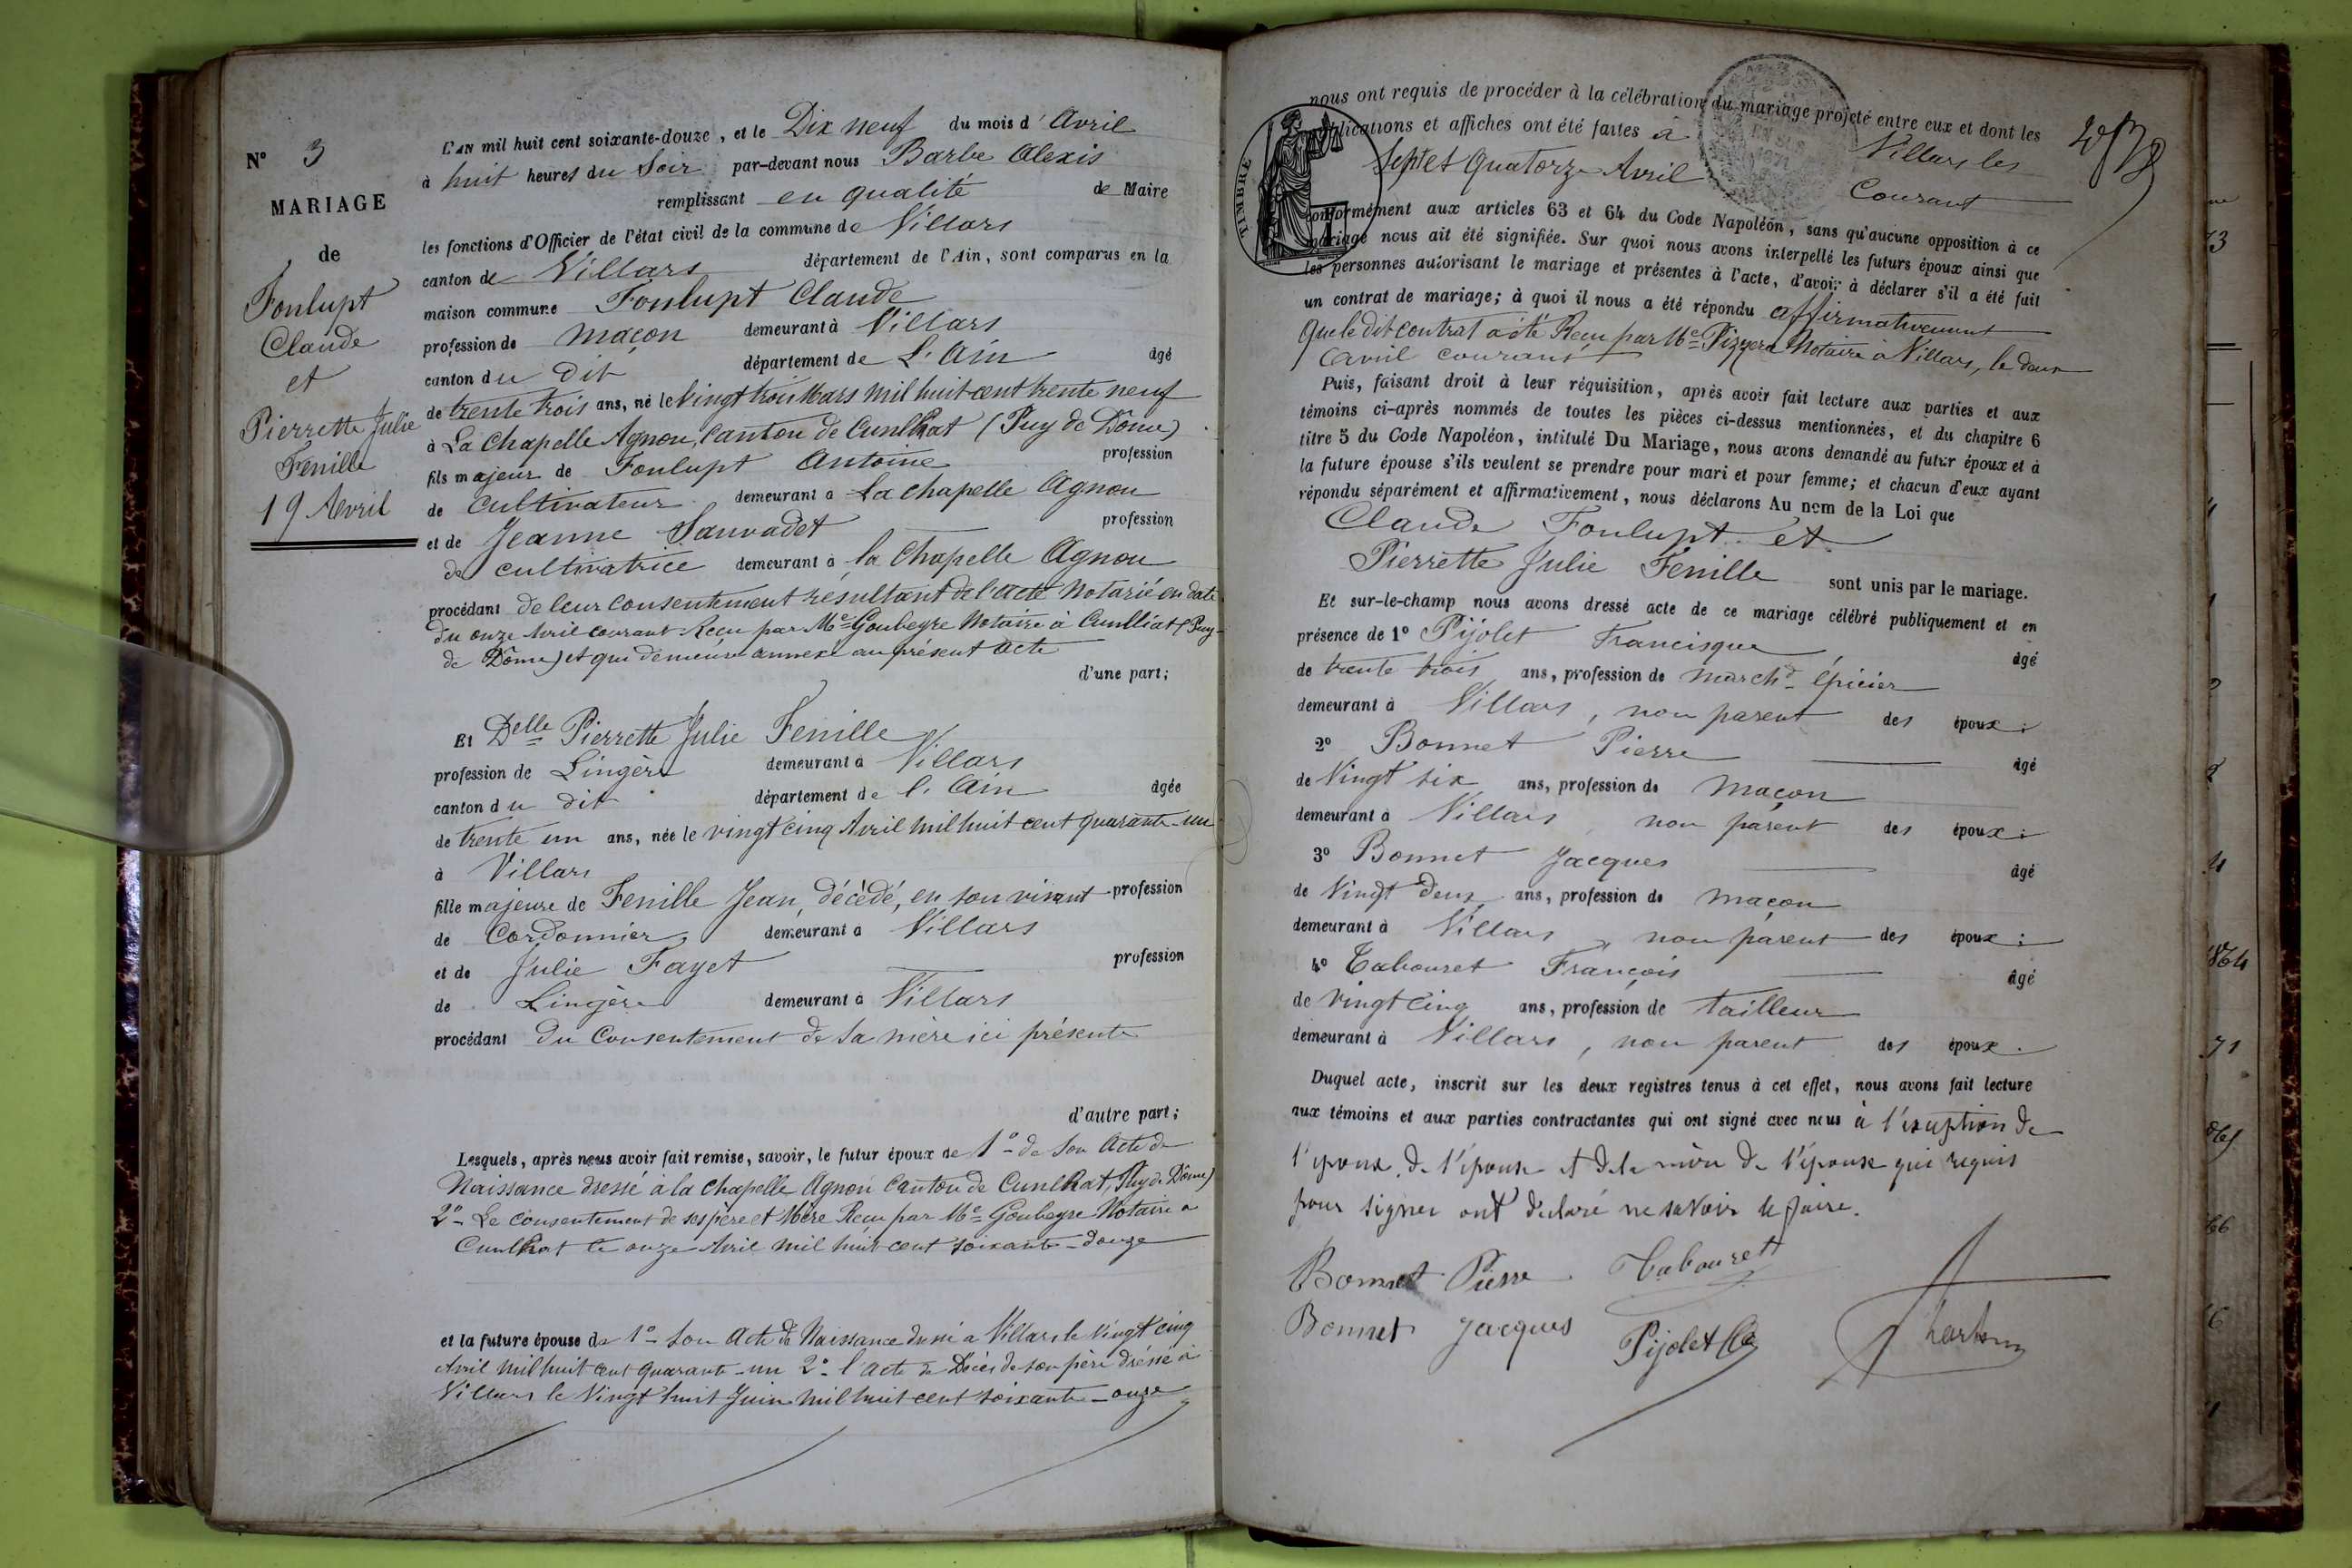 N° 3
MARIAGE
de
Foulupt
Claude
et
Pierrette Julie
Fenille
19 Avril
L'AN mil huit cent soixante-douze, et le Dix neuf du mois d'Avril
à huit heures du Soir par-devant nous Barbe Alexis
remplissant en qualité de Maire
les fonctions d'Officier de l'état civil de la commune de Villars
canton de Villars département de l'Ain, sont comparus en la
maison commune Foulupt Claude
profession de maçon demeurant à Villars
canton du dit département de L'Ain âgé
de trente trois ans, né le Vingt trois Mars mil huit cent trente neuf
à La Chapelle Agnon, Canton de Cunlhat (Puy de Dôme)
fils majeur de Foulupt Antoine profession
de Cultivateur demeurant à la chapelle Agnon
et de Jeanne Sauvadet profession
de cultivatrice demeurant à la Chapelle Agnon
procédant de leur consentement résultant de l'acte Notarié en date
du onze Avril courant Reçu par Me Goubeyre Notaire à Cunlhat (Puy-
de Dôme) et qui demeure annexé au présent acte
d'une part;
Et Delle Pierrette Julie Fenille
profession de Lingère demeurant à Villars
canton du dit département de l'Ain âgée
de trente un ans, née le vingt cinq Avril mil huit cent quarante-un
à Villars
fille majeure de Fenille Jean, décédé, en son vivant profession
de Cordonnier demeurant à Villars
et de Julie Fayet profession
de Lingère demeurant à Villars
procédant du Consentement de sa mère ici présente
d'autre part;
Lesquels, après nous avoir fait remise, savoir, le futur époux de 1° de son Acte de
Naissance dressé à la Chapelle Agnon Canton de Cunlhat, (Puy de Dôme)
2° Le consentement de ses père et Mère Reçu par Me Goubeyre Notaire à
Cunlhat le onze Avril mil huit cent soixante-douze
et la future épouse de 1° son Acte de Naissance dressé à Villars le Vingt cinq
Avril mil huit cent quarante-un 2° l'acte de Décès de son père dressé à
Villars le Vingt huit Juin mil huit cent soixante-onze
nous ont requis de procéder à la célébration du mariage projeté entre eux et dont les
publications et affiches ont été faites à Villars les
Sept et Quatorze Avril Courant
TIMBRE
1871
conformément aux articles 63 et 64 du Code Napoléon, sans qu'aucune opposition à ce
mariage nous ait été signifiée. Sur quoi nous avons interpellé les futurs époux ainsi que
les personnes autorisant le mariage et présentes à l'acte, d'avoir à déclarer s'il a été fait
un contrat de mariage; à quoi il nous a été répondu affirmativement
Que le dit contrat a été Reçu par Me Notaire à Villars, le douze
avril courant
Puis, faisant droit à leur réquisition, après avoir fait lecture aux parties et aux
témoins ci-après nommés de toutes les pièces ci-dessus mentionnées, et du chapitre 6
titre 5 du Code Napoléon, intitulé Du Mariage, nous avons demandé au futur époux et à
la future épouse s'ils veulent se prendre pour mari et pour femme; et chacun d'eux ayant
répondu séparément et affirmativement, nous déclarons Au nom de la Loi que
Claude Foulupt et
Pierrette Julie Fenille sont unis par le mariage.
Et sur-le-champ nous avons dressé acte de ce mariage célébré publiquement et en
présence de 1° Pijolet Francisque âgé
de trente trois ans, profession de marchd épicier
demeurant à Villars, non parent des époux:
2° Bonnet Pierre âgé
de Vingt six ans, profession de maçon
demeurant à Villars, non parent des époux:
3° Bonnet Jacques âgé
de Vingt deux ans, profession de maçon
demeurant à Villars, non parent des époux:
4° Tabouret François âgé
de vingt cinq ans, profession de tailleur
demeurant à Villars, non parent des époux.
Duquel acte, inscrit sur les deux registres tenus à cet effet, nous avons fait lecture
aux témoins et aux parties contractantes qui ont signé avec nous à l'exception de
l'époux, de l'épouse et de la mère de l'épouse qui requis
pour signer ont déclaré ne savoir le faire.
Bonnet Pierre Tabouret
Bonnet Jacques Pijolet